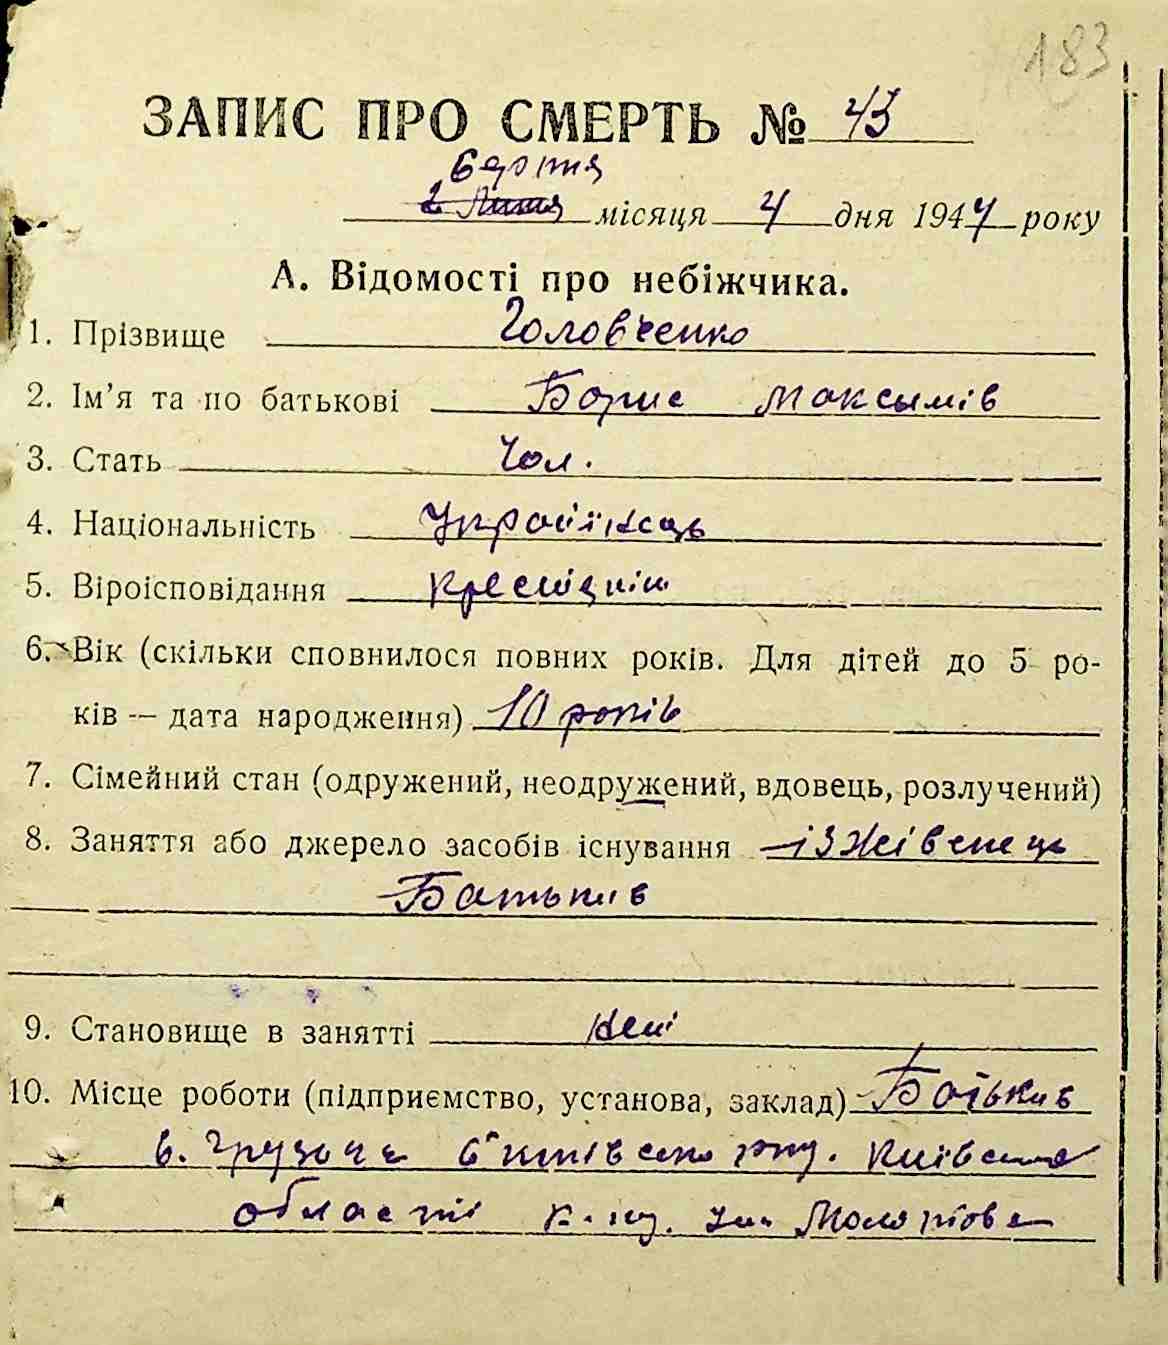 183
ЗАПИС ПРО СМЕРТЬ № 43
березня
місяця 4 дня 1947 року
А. Відомості про небіжчика.
1. Прізвище Головченко
2. Ім’я та по батькові Борис Максимів
3. Стать Чол.
4. Національність Українець
5. Віроісповідання
6. Вік (скільки сповнилося повних років. Для дітей до 5 ро-
ків — дата народження) 10 років
7. Сімейний стан (одружений, неодружений, вдовець, розлучений)
8. Заняття або джерело засобів існування іжівенець
Батьків
9. Становище в занятті
10. Місце роботи (підприємство, установа, заклад) Батьків
Київської
області